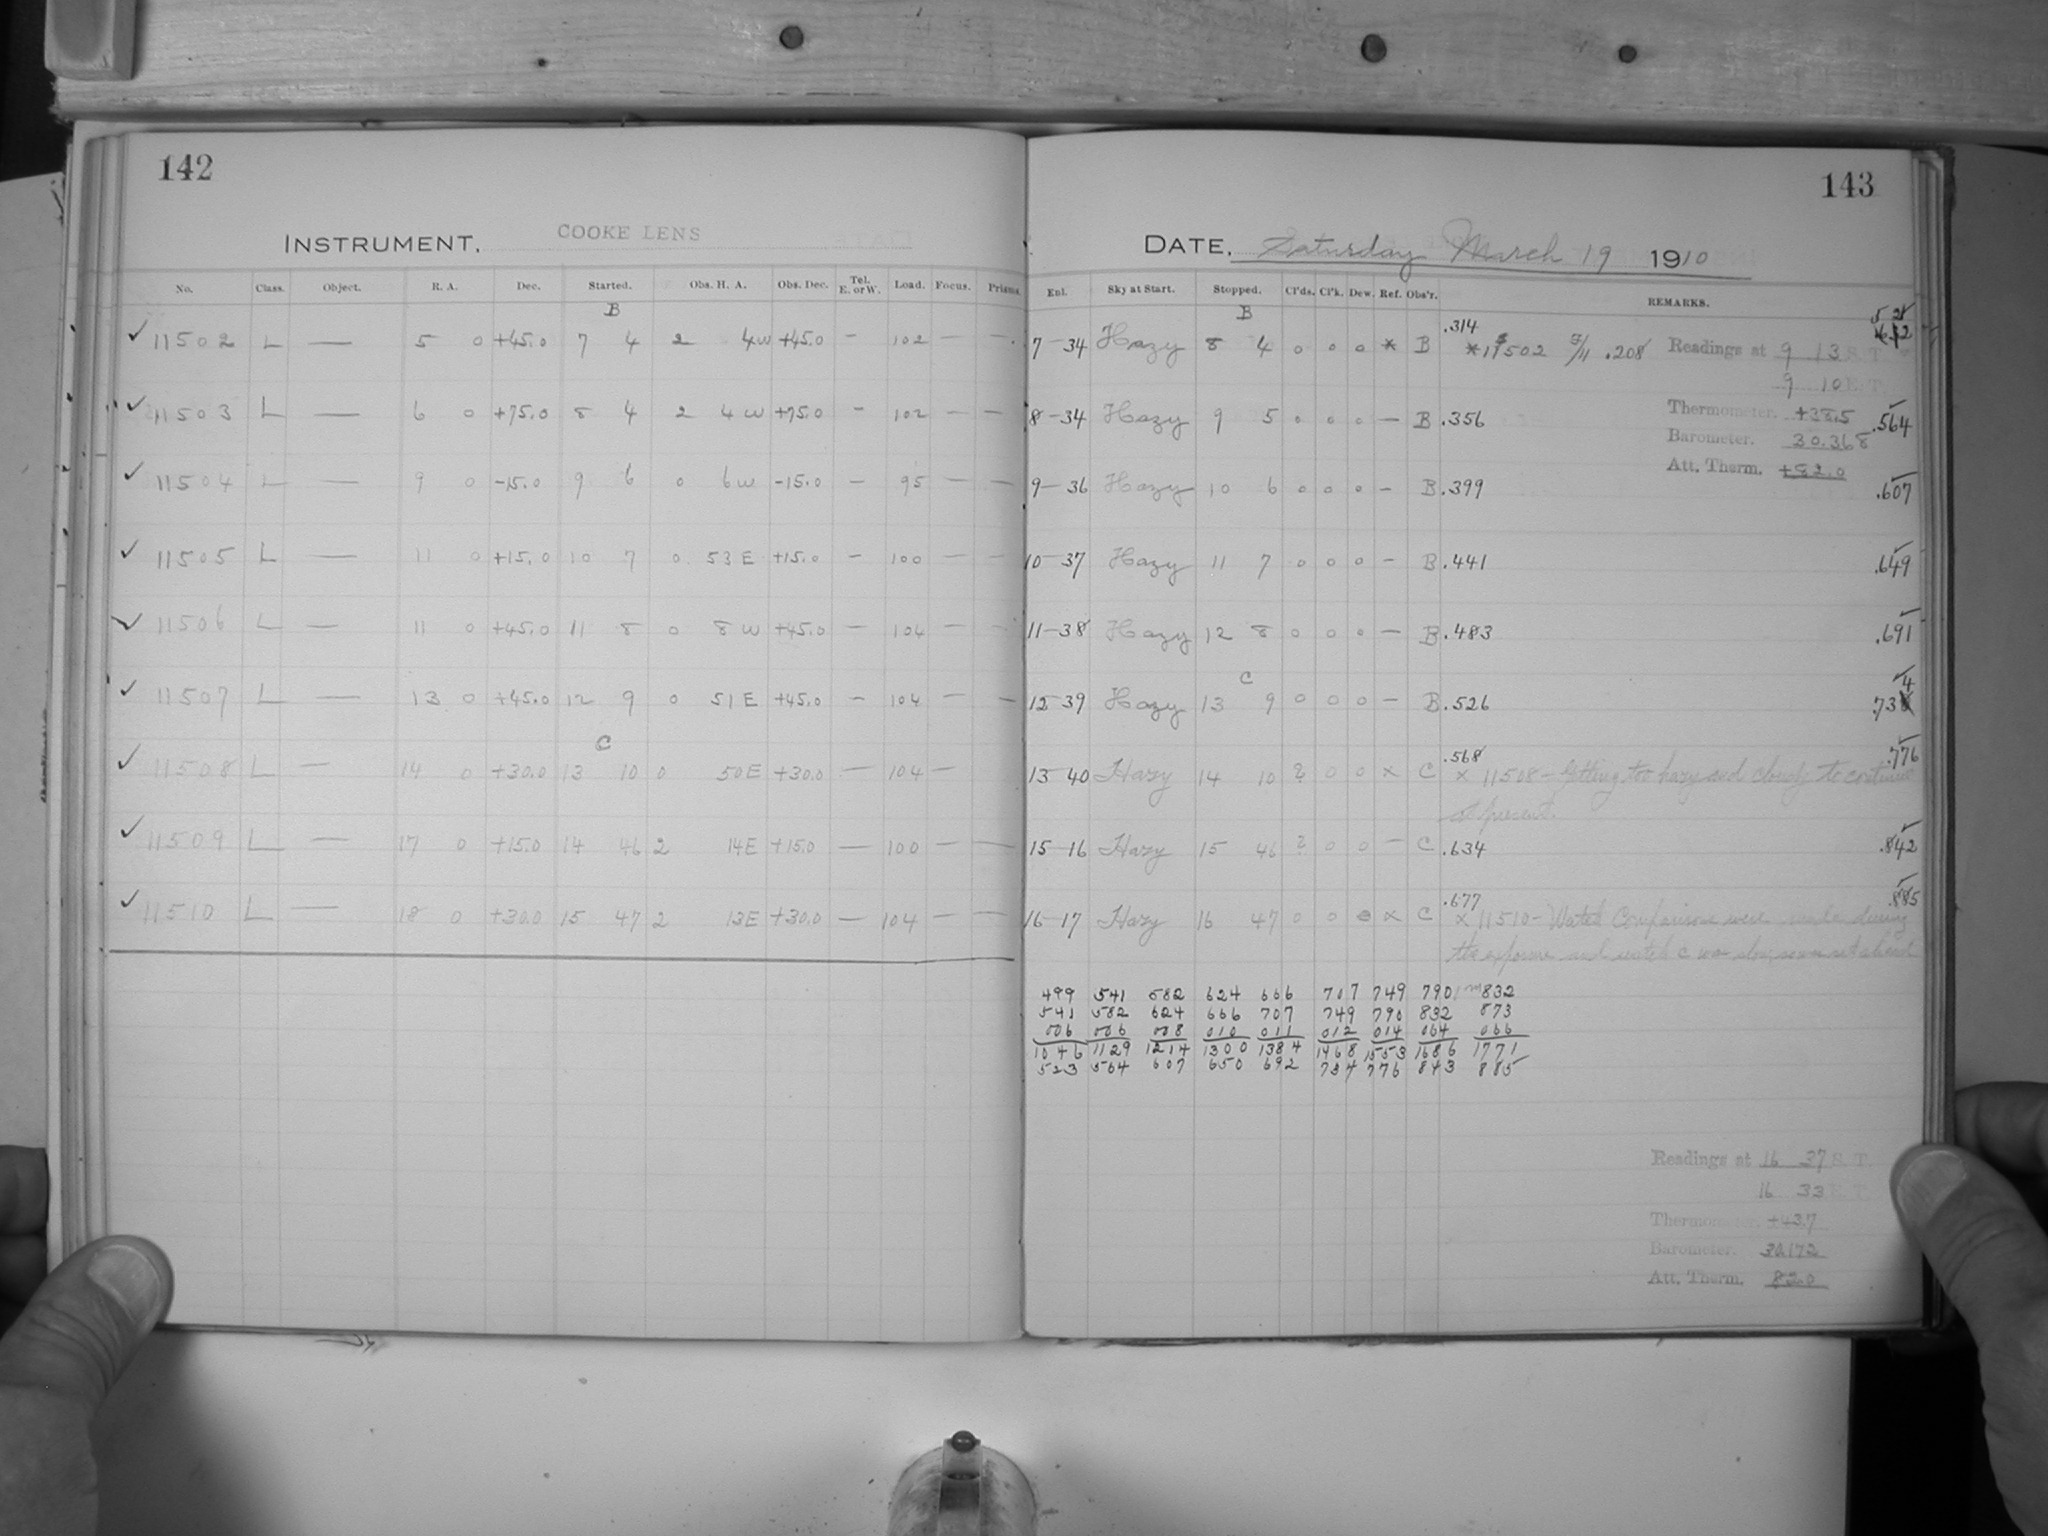 142
INSTRUMENT. COOKE LENS
No. Class. Object. R. A. Dec. Started. Obs. H. A. Obs. Dec. Tel. E. or W. Load. Focus. Prisms.
B
✓ 11502 L — 5 0 +45.0 7 4 2 4W +45.0 — 102 — —
✓ 11503 L — 6 0 +75.0 8 4 2 4W +75.0 — 102 — —
✓ 11504 L — 9 0 -15.0 9 6 0 6W -15.0 — 95 — —
✓ 11505 L — 11 0 +15.0 10 7 0 53E +15.0 — 100 — —
✓ 11506 L — 11 0 +45.0 11 8 0 8W +45.0 — 104 — —
✓ 11507 L — 13 0 +45.0 12 9 0 51E +45.0 — 104 — —
C
✓ 11508 L — 14 0 +30.0 13 10 0 50E +30.0 — 104 —
✓ 11509 L — 17 0 +15.0 14 46 2 14E +15.0 — 100 — —
✓ 11510 L — 18 0 +30.0 15 47 2 13E +30.0 — 104 — —
143
DATE. Saturday March 19 1910
Enl. Sky at Start. Stopped. Cl'ds. Cl'k. Dew. Ref. Obs'r. REMARKS.
B
7-34 Hazy 8 4 0 0 0 * B .314 *11502 .208
Readings at 9 13 S.T.
9 10 E.T.
Thermometer. +38.5
Barometer. 30.368
Att. Therm. +82.0
8-34 Hazy 9 5 0 0 0 — B .356 .564
9-36 Hazy 10 6 0 0 0 — B .399 .607
10-37 Hazy 11 7 0 0 0 — B .441 .649
11-38 Hazy 12 8 0 0 0 — B .483 .691
C
12-39 Hazy 13 9 0 0 0 — B .526 .734
13-40 Hazy 14 10 ? 0 0 x C .568 .776
x 11508 - Getting too hazy and cloudy to continue
at present.
15-16 Hazy 15 46 ? 0 0 — C .634 .842
16-17 Hazy 16 47 0 0 0 x C .677 .885
x 11510 - Watch Comparisons were made during
the exposure and watch C was slow, so was set ahead
499 541 582 624 666 707 749 790 832
541 582 624 666 707 749 790 832 873
006 006 008 010 011 012 014 064 066
1046 1129 1214 1300 1384 1468 1553 1686 1771
523 564 607 650 692 734 776 843 885
Readings at 16 37 S.T.
16 33 E.T.
Thermometer. +43.7
Barometer. 30.172
Att. Therm. 82.0